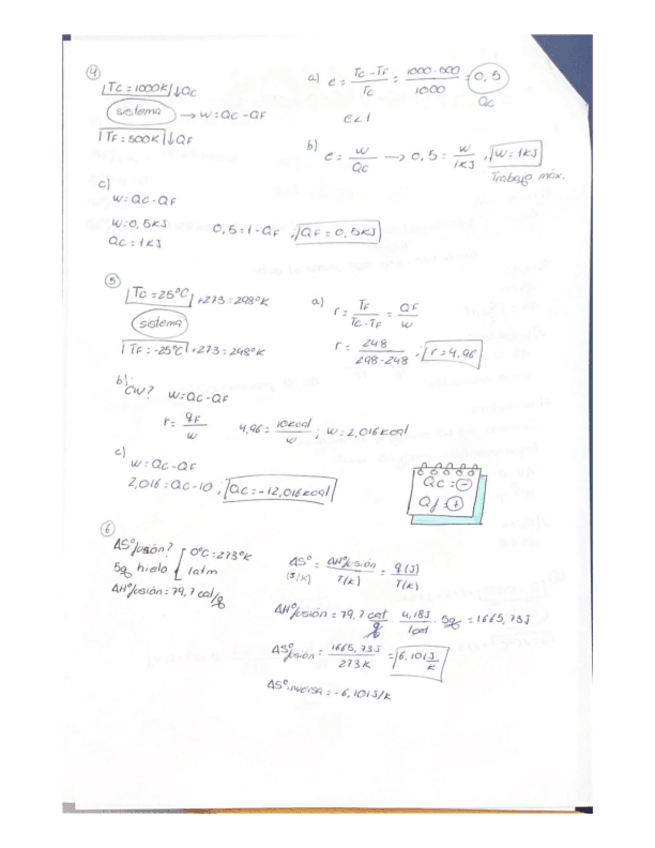 4
Tc = 1000K ↓Qc
sistema → w = Qc - QF
TF = 500K ↓QF
a) e = Tc - TF / Tc = 1000 - 500 / 1000 = 0,5
Qc
e < 1
b) e = w / Qc → 0,5 = w / 1KJ , w = 1KJ
Trabajo máx.
c)
w = Qc - QF
w = 0,5KJ
Qc = 1KJ
0,5 = 1 - QF , QF = 0,5KJ
5
Tc = 25ºC +273 = 298ºK
sistema
TF = -25ºC +273 = 248ºK
a) r = TF / Tc - TF = QF / w
r = 248 / 298 - 248 , r = 4,96
b) ¿w? w = Qc - QF
r = qF / w 4,96 = 10Kcal / w ; w = 2,016Kcal
c)
w = Qc - QF
2,016 = Qc - 10 , Qc = -12,016Kcal
Qc = -
Qf = +
6
ΔSºfusión?
5g hielo
0ºC = 273ºK
1atm
ΔHºfusión = 79,7 cal/g
ΔSº (J/K) = ΔHºfusión / T(K) = q (J) / T(K)
ΔHºfusión = 79,7 cal / g · 4,18J / 1cal · 5g = 1665,73J
ΔSºfusión = 1665,73J / 273K = 6,101 J / K
ΔSº inversa = -6,101J/K